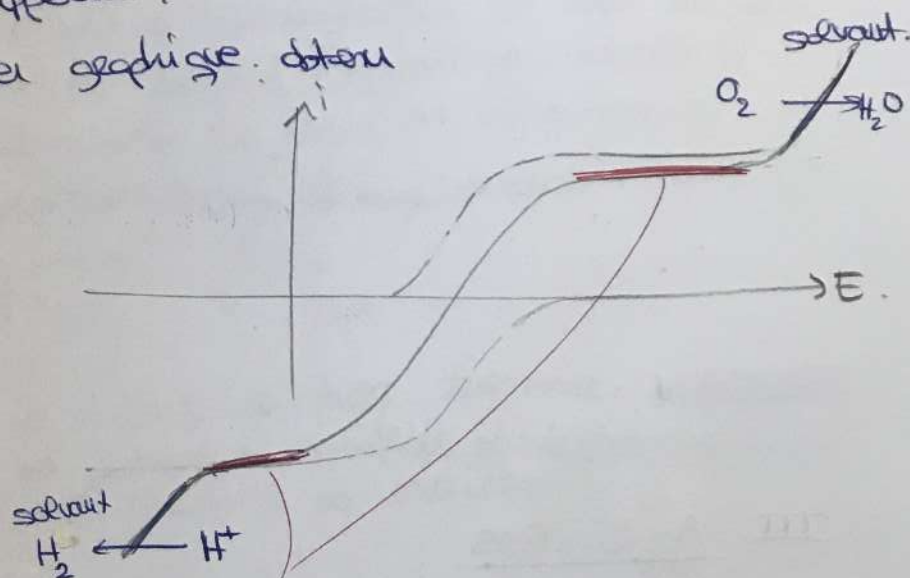 graphique. obtenu
i
solvant.
O₂ → H₂O
E.
solvant
H₂ ← H⁺